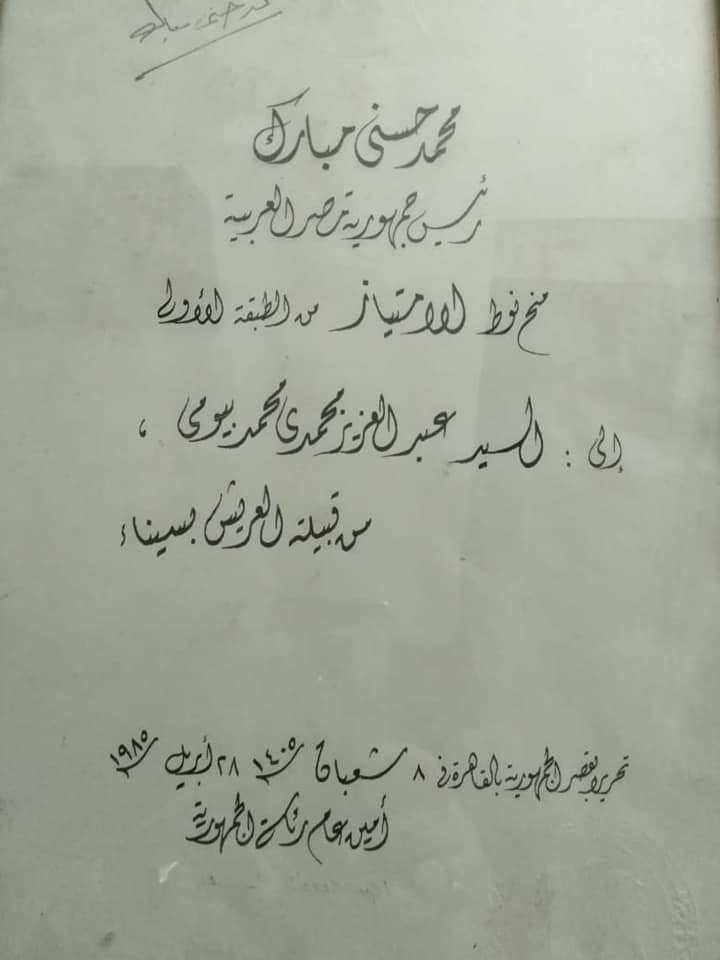 محمد حسنى مبارك
رئيس جمهورية مصر العربية
منح نوط الامتياز من الطبقة الأولى
إلى : السيد عبد العزيز محمدى محمد بيومى ،
من قبيلة العريش بسيناء
تحريرا بقصر الجمهورية بالقاهرة فى ٨ شعبان ١٤٠٥ ٢٨ أبريل ١٩٨٥
أمين عام رئاسة الجمهورية